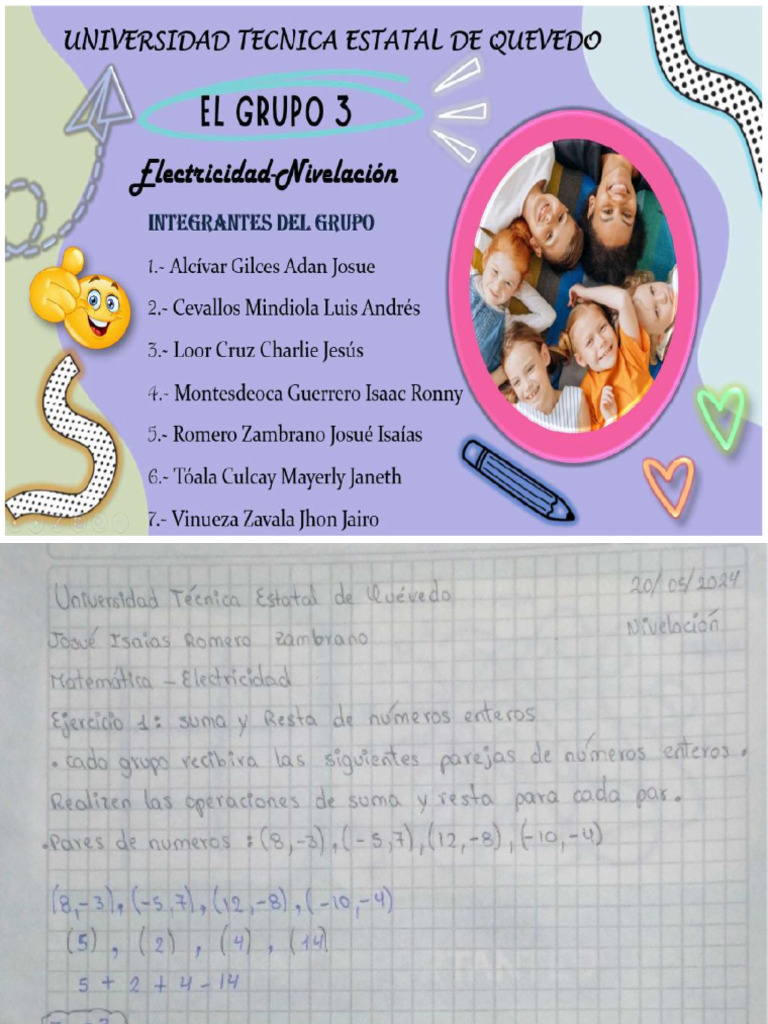 UNIVERSIDAD TECNICA ESTATAL DE QUEVEDO
EL GRUPO 3
Electricidad-Nivelación
INTEGRANTES DEL GRUPO
1.- Alcívar Gilces Adan Josue
2.- Cevallos Mindiola Luis Andrés
3.- Loor Cruz Charlie Jesús
4.- Montesdeoca Guerrero Isaac Ronny
5.- Romero Zambrano Josué Isaías
6.- Tóala Culcay Mayerly Janeth
7.- Vinueza Zavala Jhon Jairo
Universidad Técnica Estatal de Quévedo 20/05/2024
Josué Isaias Romero Zambrano Nivelación
Matemática - Electricidad
Ejercicio 1: suma y Resta de números enteros
. cado grupo recibira las siguientes parejas de números enteros.
Realizen las operaciones de suma y resta para cada par.
.Pares de numeros : (8,-3), (-5,7), (12,-8), (-10,-4)
(8,-3), (-5,7), (12,-8), (-10,-4)
(5), (2), (4), (14)
5 + 2 + 4 - 14